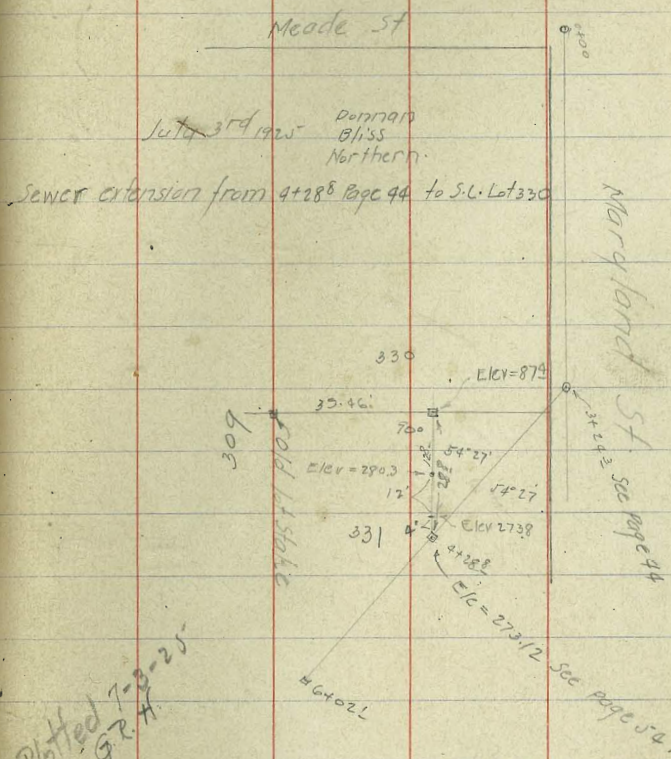 Meade St
0+00
July 3rd 1925
Donnan
Bliss
Northern.
Sewer extension from 4+28⁸ Page 44 to S.L. Lot 330
Maryland St.
330
Elev=87⁴
39.46'
309
Old lot stake
90°
54°27'
28⁸
Elev=280.3
12'
54°27
3+24³ see page 44
331
4'
Elev 273.8
4+28⁸
Ele=273.12 see page 54.
6+02'
Plotted 7-3-25
G.R.H.